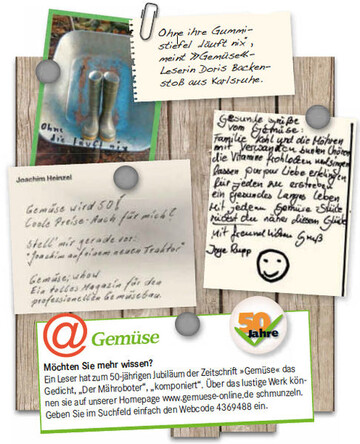 Ohne ihre Gummi-
stiefel läuft nix,
meint »Gemüse«-
Leserin Doris Backen-
stoß aus Karlsruhe.
Ohne
die läuft nix
Joachim Heinzel
Gemüse wird 50!
Coole Preise - Auch für mich?
Stell' mir gerade vor:
"Joachim auf einem neuen Traktor"
Gemüse,
Ein tolles Magazin für den
professionellen Gemüsebau.
Gesunde Grüße
vom Gemüse:
Familie Kohl und die Möhren
mit Verwandten bunten Chören
die Vitamine frohlocken und singen
lassen pur pur Liebe erklingen
Für jeden zu erstreben
ein gesundes langes Leben
Mit jedem Gemüse-Stück
rückst du näher diesem Glück
Mit freundlichem Gruß
Rupp
@ Gemüse
50
Jahre
Möchten Sie mehr wissen?
Ein Leser hat zum 50-jährigen Jubiläum der Zeitschrift »Gemüse« das
Gedicht, „Der Mähroboter“, „komponiert“. Über das lustige Werk kön-
nen sie auf unserer Homepage www.gemuese-online.de schmunzeln.
Geben Sie im Suchfeld einfach den Webcode 4369488 ein.